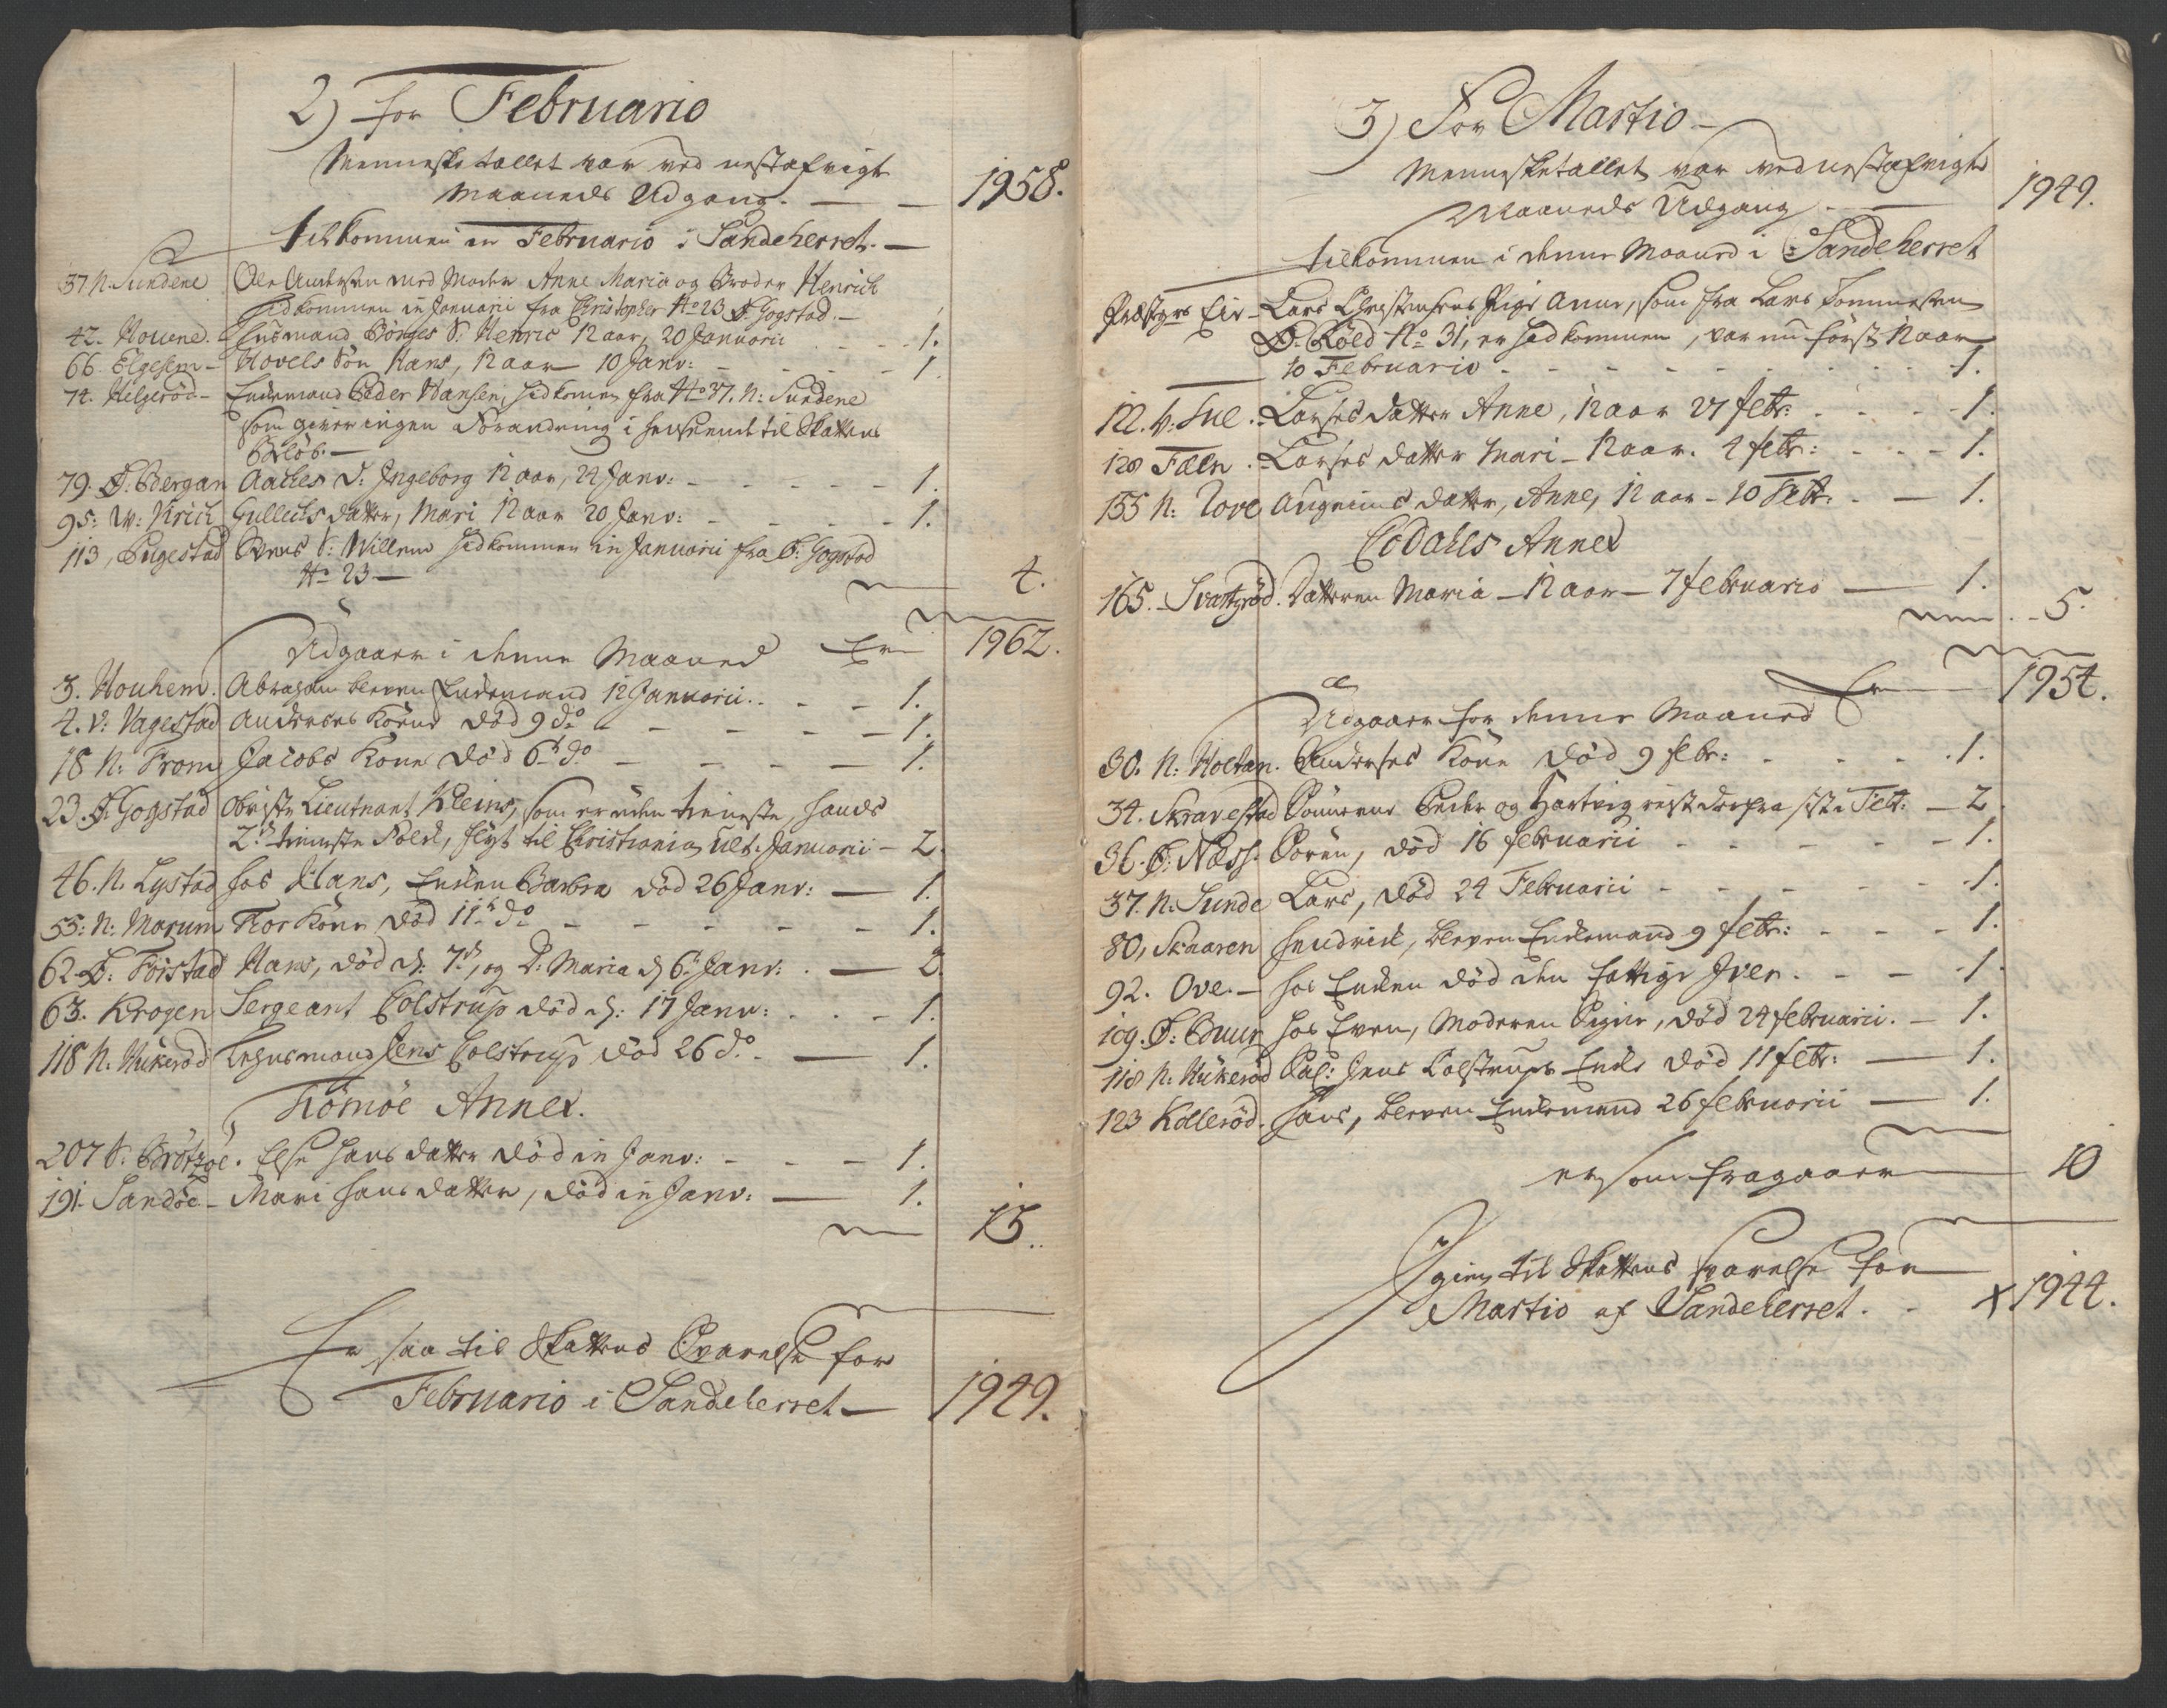 2) for Februario
Menneske tallet var ved nestafvigte
Maaneds Udgang. — — 1958.
tilkommen in Februario i Sandeherret. —
37 N. Sundene Ole Andersen med Moder Anne Maria og Broder Henrich
hidkommen in Januarii fra Christopher No 23 Ø. Gogstad. —
42. Houene. Huusmand Börges S. Henric 12 aar, 20 Januarii 1.
66. Elgesem - Hovels Sön Hans, 12 aar 10 Janv: - - - 1.
74. Helgeröd - Enkemand Peder Hansen, hidkomen fra No 37. N: Sundene
som giver ingen Forandring i henseende til Skattens
Belöb. —
79. Ø. Bergan Aages D: Ingeborg 12 aar, 24 Janv: - - - 1.
95: W: Krich Gullichs datter, Mari 12 aar 20 Janv: - - - 1.
113, Bugestad S: Willem hidkommen in Januarii fra Ø: Gogstad
No 23 — 4.
Er 1962.
Udgaaer i denne Maaned
3. Houhem. Abraham bleven Enkemand 12 Januarii. - - 1.
4. V: Vagestad Anderses Kone död 9 do - - - 1.
18 N: From Jacobs Kone död 6te do - - - 1.
23. Ø. Gogstad Obriste Lieutnant Kleins, som er uden tieneste, hands
2de tieneste Folk, flyt til Christiania ult. Januarii - 2.
46. N. Lystad hos Hans, Enken Barbra död 26 Janv: — 1.
55: N: Marum Thor Kone död 11te do - - - - 1.
62 Ø: Föistad Hans, död d: 7de, og D: Maria d 6te Janv: . — 2.
63. Krogen Sergeant Colstrup död d: 17 Janv: . . - 1.
118 N. Hukeröd Huusmand Jens Colstrup död 26 do. — 1.
Tiömöe Annex.
207 S. Brötzöe. Else Hansdatter död in Janv: - - - 1.
191. Sandöe - Mari Hansdatter, död in Janv: — 1.
13.
Er saa til Skattens Svarelse for
Februario i Sandeherret — 1949.
3) For Martio —
Mennesketallet var ved nestafvigte
Maaneds Udgang . — 1949.
tilkommen i denne Maaned i Sandeherret
Lars Christensens Pige Anne, som fra Lars Tommesen
Ø. Röld No 31, er hidkommen, var nu först 12 aar
10 Februario - - - - 1.
122. V: Sue. Larses datter Anne, 12 aar 27 febr: . . - 1.
128 Fæen . Larses datter Mari - 12 aar. 4 febr: - - - 1.
155 N: Rove datter, Anne, 12 aar - 10 Febr. - — 1.
Kodahls Annex
165. Svartsröd. Datteren Maria - 12 aar - 7 februario — 1.
5.
Er 1954.
Udgaaer for denne Maaned
30. N: Holtan. Anderses Kone död 9 febr: - - - 1.
34. Skravestad Sönnerne Peder og Hartvig reist derfra siste Febr: — 2
36. Ø. Næss. Sören, död 16 februarii - - - 1.
37. N. Sunde Lars, död 24 Februarii - - - - 1.
80, Skaaren Hendrich, bleven Enkemand 9 febr: - - - 1.
92. Ove. — hos Enken död den fattige Iver. - - 1.
109. Ø: Buur hos Even, Moderen Signe, död 24 februarii. - 1.
118 N: Hukeröd Sal: Jens Colstrups Enke död 11 febr: — 1.
123 Kolleröd. Hans, bleven Enkemand 26 februarii — 1.
er som fragaaer 10
Igien til Skattens svarelse for
Martio af Sandeherret. . x 1944.